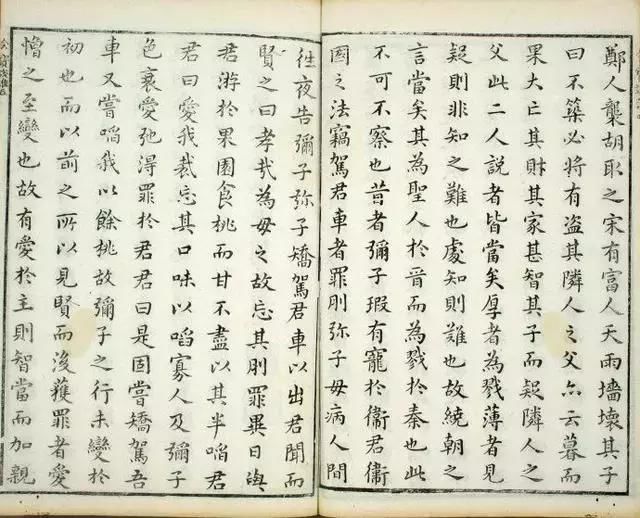 鄭人襲胡取之宋有富人天雨墻壞其子
曰不築必將有盗其隣人之父亦云暮而
果大亡其財其家甚智其子而疑隣人之
父此二人說者皆當矣厚者為戮薄者見
疑則非知之難也處知則難也故繞朝之
言當矣其為聖人於晉而為戮於秦也此
不可不察也昔者彌子瑕有寵於衞君衞
國之法竊駕君車者罪刖弥子母病人間
徃夜告彌子弥子矯駕君車以出君聞而
賢之曰孝哉為母之故忘其刖罪異日與
君游於果園食桃而甘不盡以其半啗君
君曰愛我哉忘其口味以啗寡人及彌子
色衰愛弛得罪於君君曰是固嘗矯駕吾
車又嘗啗我以餘桃故彌子之行未變於
初也而以前之所以見賢而後獲罪者愛
憎之至變也故有愛於主則智當而加親